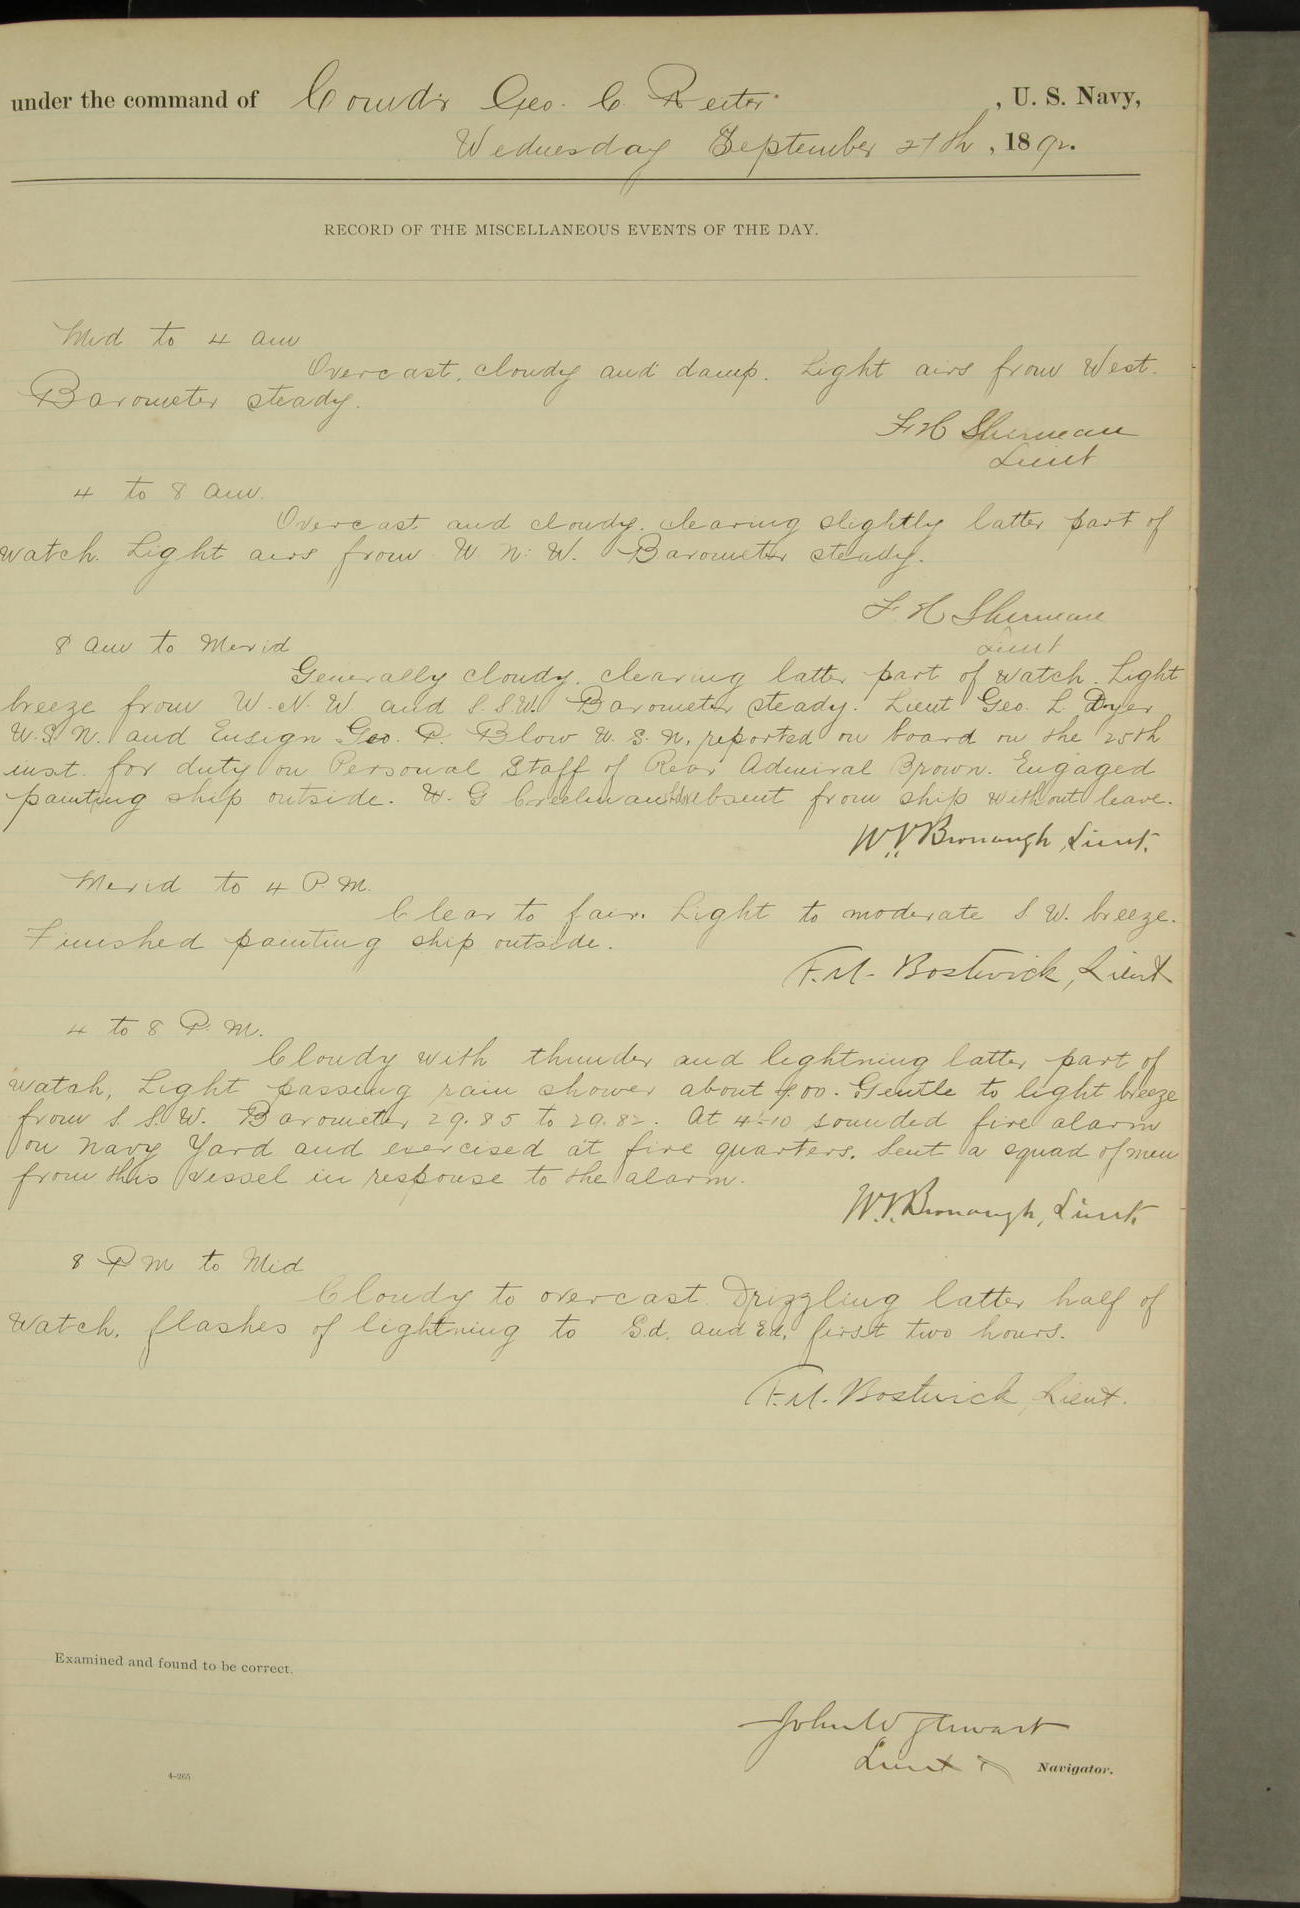 under the command of Comdr Geo. C Reiter , U. S. Navy,
Wednesday September 27th, 1892.
RECORD OF THE MISCELLANEOUS EVENTS OF THE DAY.
Mid to 4 am
Overcast, cloudy and damp. Light airs from West.
Barometer steady.
F H Sherman
Lieut
4 to 8 am.
Overcast and cloudy. clearing slightly latter part of
watch. Light airs from W. N. W. Barometer steady.
F. H Sherman
Lieut
8 am to Merid
Generally cloudy. clearing latter part of watch. Light
breeze from W. N. W. and S. S. W. Barometer steady. Lieut Geo. L. Dyer
U.S. N. and Ensign Geo. P. Blow U. S. N. reported on board on the 25th
inst. for duty on Personal Staff of Rear Admiral Brown. Engaged
painting ship outside. W. G Creelman absent from ship without leave.
W. V. Bronaugh, Lieut.
Merid to 4 P. M.
Clear to fair. Light to moderate S W. breeze.
Finished painting ship outside.
F. M. Bostwick, Lieut
4 to 8 P. M.
Cloudy with thunder and lightning latter part of
watch, Light passing rain shower about 7.00. Gentle to light breeze
from S. S. W. Barometer 29.85 to 29.82. At 4:10 sounded fire alarm
on Navy Yard and exercised at fire quarters. Sent a squad of men
from this vessel in response to the alarm.
W. V. Bronaugh, Lieut.
8 P M to Mid
Cloudy to overcast. Drizzling latter half of
watch. flashes of lightning to Sd. and Ed. first two hours.
F. M. Bostwick, Lieut.
Examined and found to be correct.
John W Stewart
Lieut & Navigator.
4—265